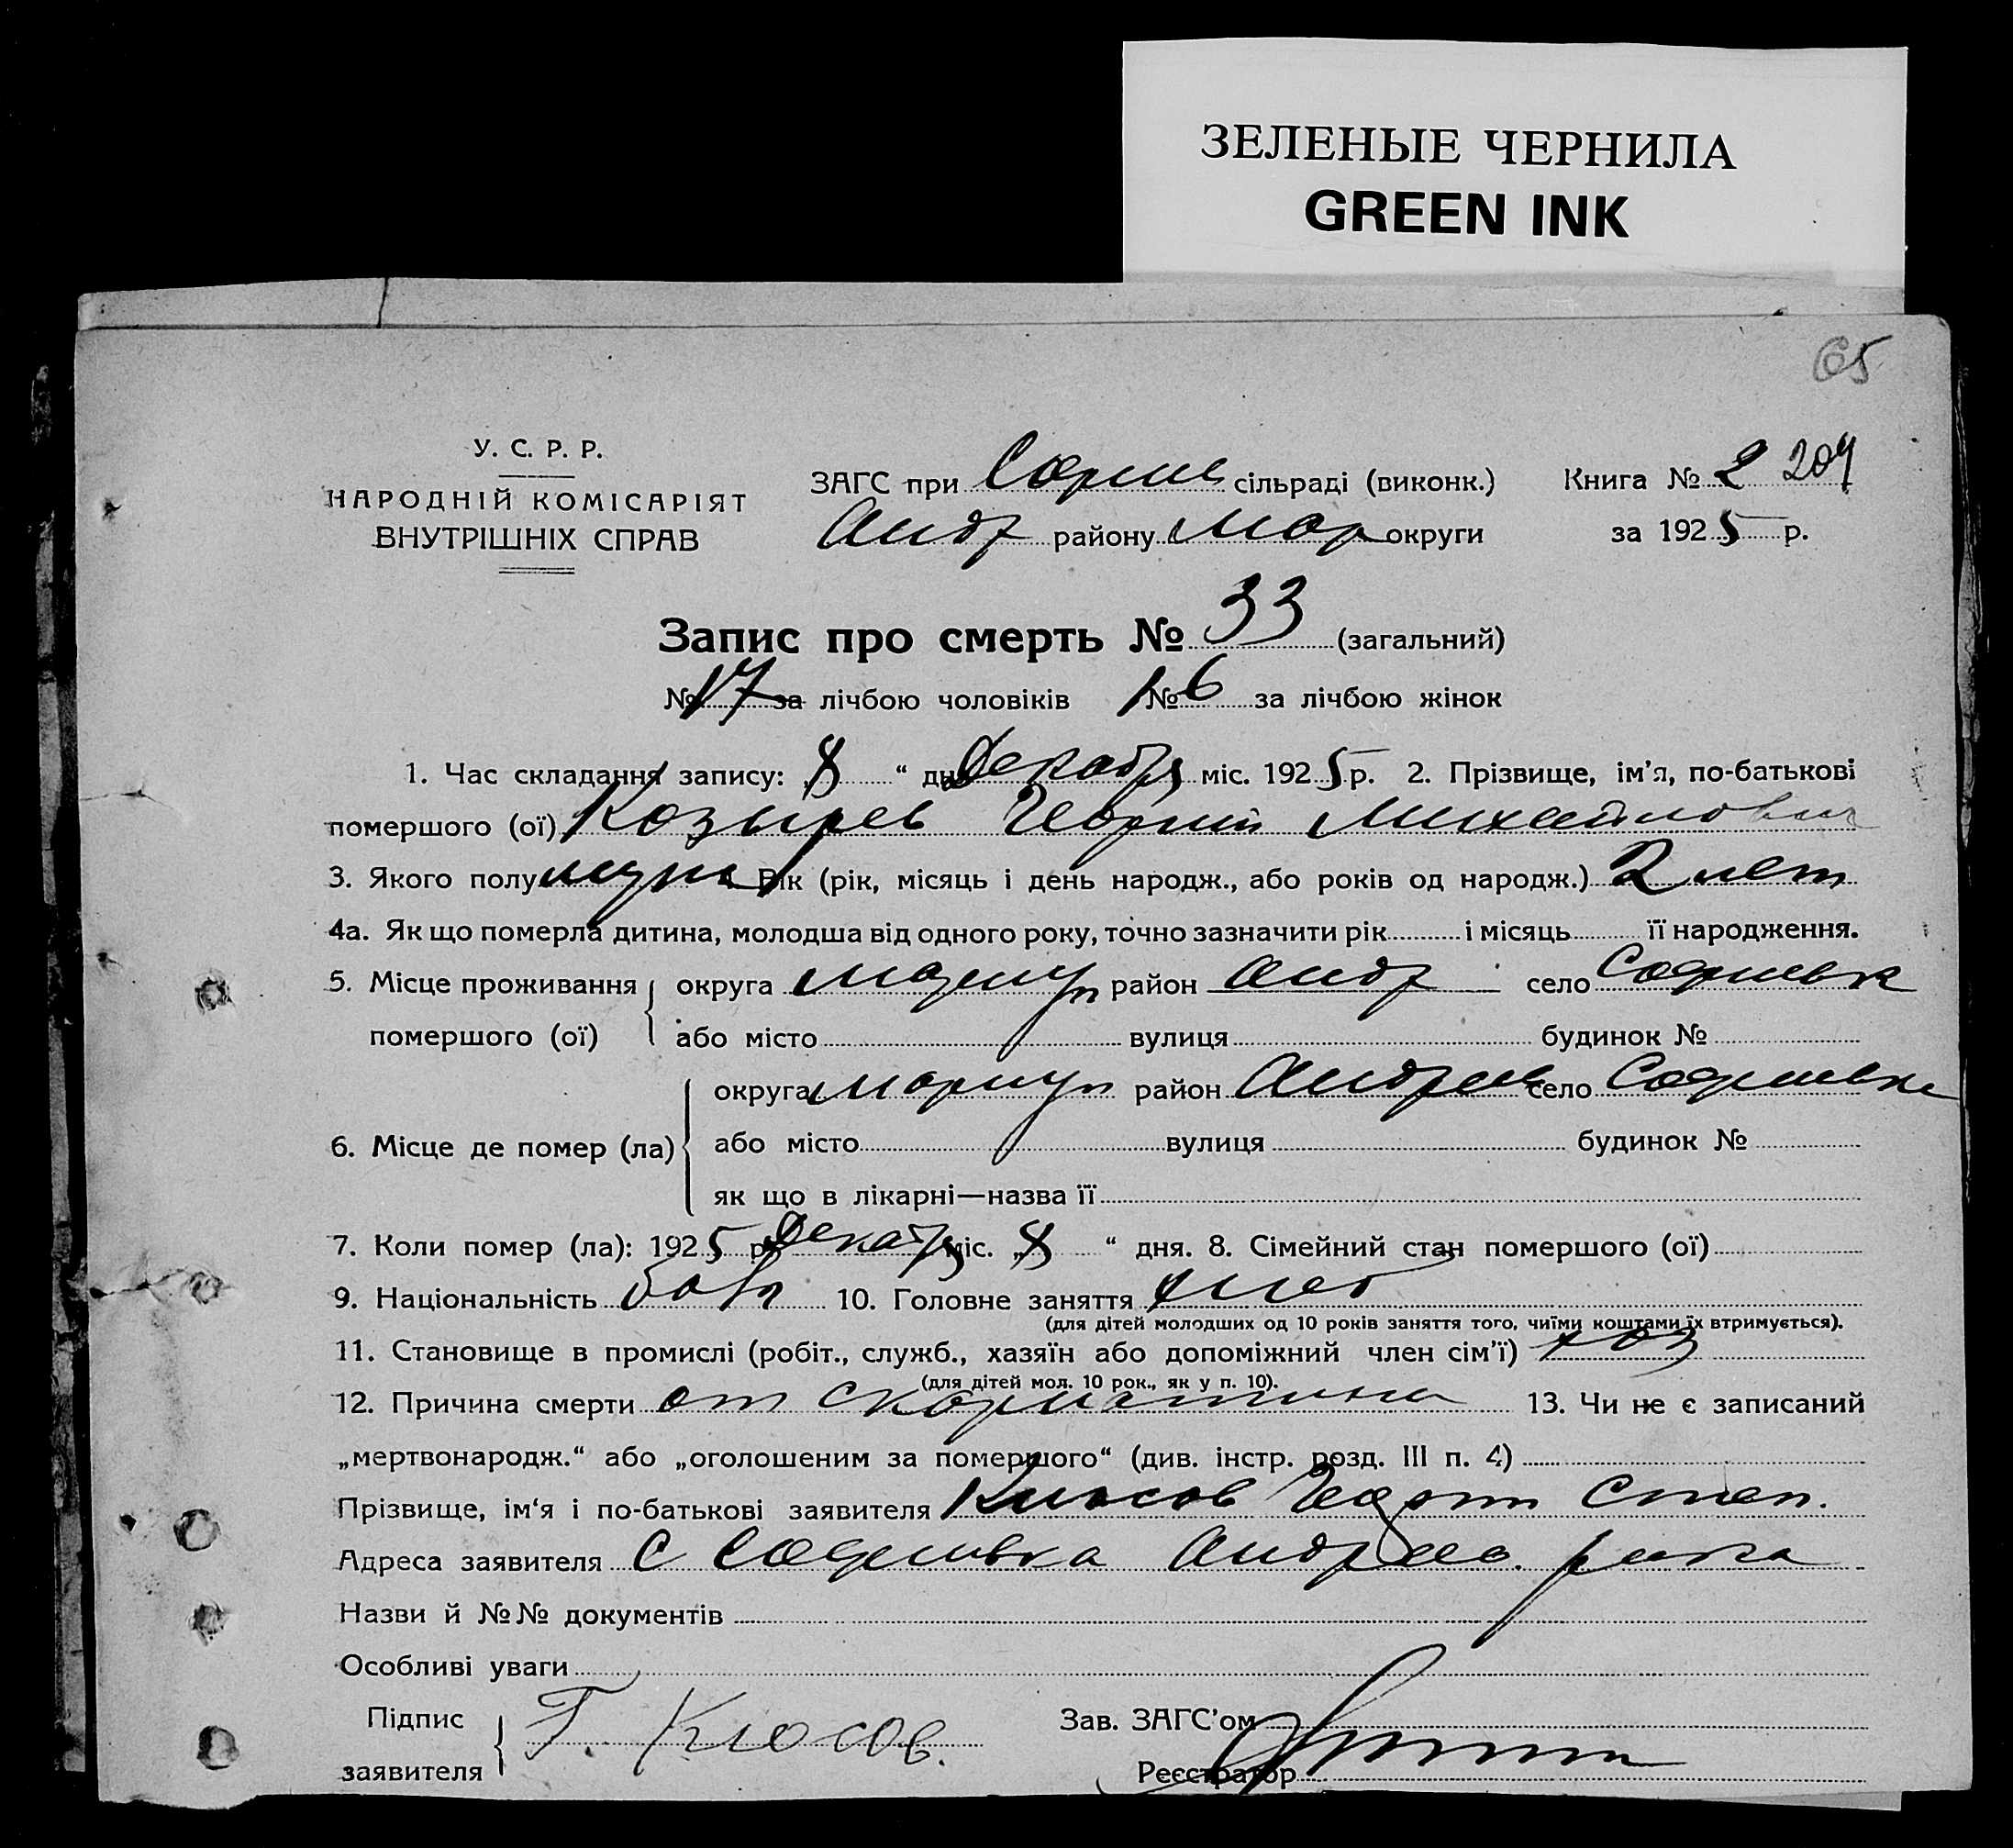 ЗЕЛЕНЫЕ ЧЕРНИЛА
GREEN INK
65
У. С. Р. Р.
НАРОДНІЙ КОМІСАРІЯТ
ВНУТРІШНІХ СПРАВ
ЗАГС при сільраді (виконк.) Книга № 2 209
Андр району Мар округи за 1925 р.
Запис про смерть № 33 (загальний)
№ 17 за лічбою чоловіків № 16 за лічбою жінок
1. Час складання запису: „8“ дня Декабря міс. 1925 р. 2. Прізвище, ім’я, по-батькові
помершого (ої) Козырев Георгий Михайлович
3. Якого полу муж Вік (рік, місяць і день народж., або років од народж.) 2 лет
4а. Як що померла дитина, молодша від одного року, точно зазначити рік і місяць її народження.
5. Місце проживання округа район Андр село
помершого (ої) або місто вулиця будинок №
округа Мариуп район Андреев село
6. Місце де помер (ла) або місто вулиця будинок №
як що в лікарні—назва її
7. Коли помер (ла): 1925 р. Декабря міс. „8“ дня. 8. Сімейний стан помершого (ої)
9. Національність 10. Головне заняття хлеб
(для дітей молодших од 10 років заняття того, чиїми коштами їх втримується).
11. Становище в промислі (робіт., служб., хазяїн або допоміжний член сім’ї) хоз
(для дітей мол. 10 рок., як у п. 10).
12. Причина смерти от скорлатина 13. Чи не є записаний
„мертвонародж.“ або „оголошеним за помершого“ (див. інстр. розд. III п. 4)
Прізвище, ім‘я і по-батькові заявителя Клюсов Георги Степ.
Адреса заявителя С Андреев. района
Назви й №№ документів
Особливі уваги
Підпис Г. Клюсов. Зав. ЗАГС’ом
заявителя Реєстратор